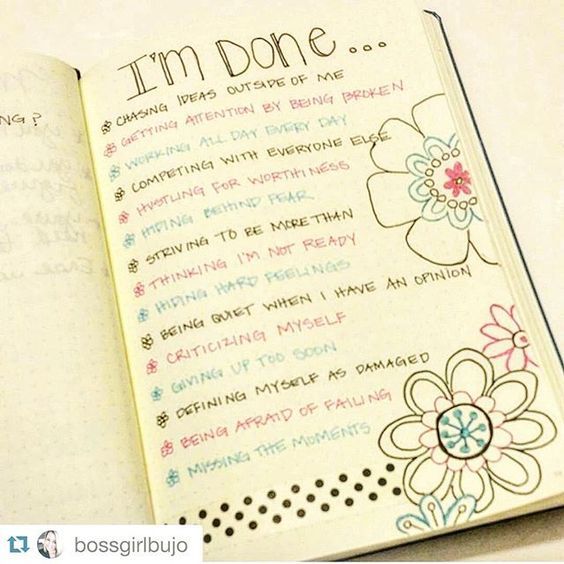 I'm Done...
CHASING IDEAS OUTSIDE OF ME
GETTING ATTENTION BY BEING BROKEN
WORKING ALL DAY EVERY DAY
COMPETING WITH EVERYONE ELSE
HUSTLING FOR WORTHINESS
HIDING BEHIND FEAR
STRIVING TO BE MORE THAN
THINKING I'M NOT READY
HIDING HARD FEELINGS
BEING QUIET WHEN I HAVE AN OPINION
CRITICIZING MYSELF
GIVING UP TOO SOON
DEFINING MYSELF AS DAMAGED
BEING AFRAID OF FAILING
MISSING THE MOMENTS
NG?
bossgirlbujo